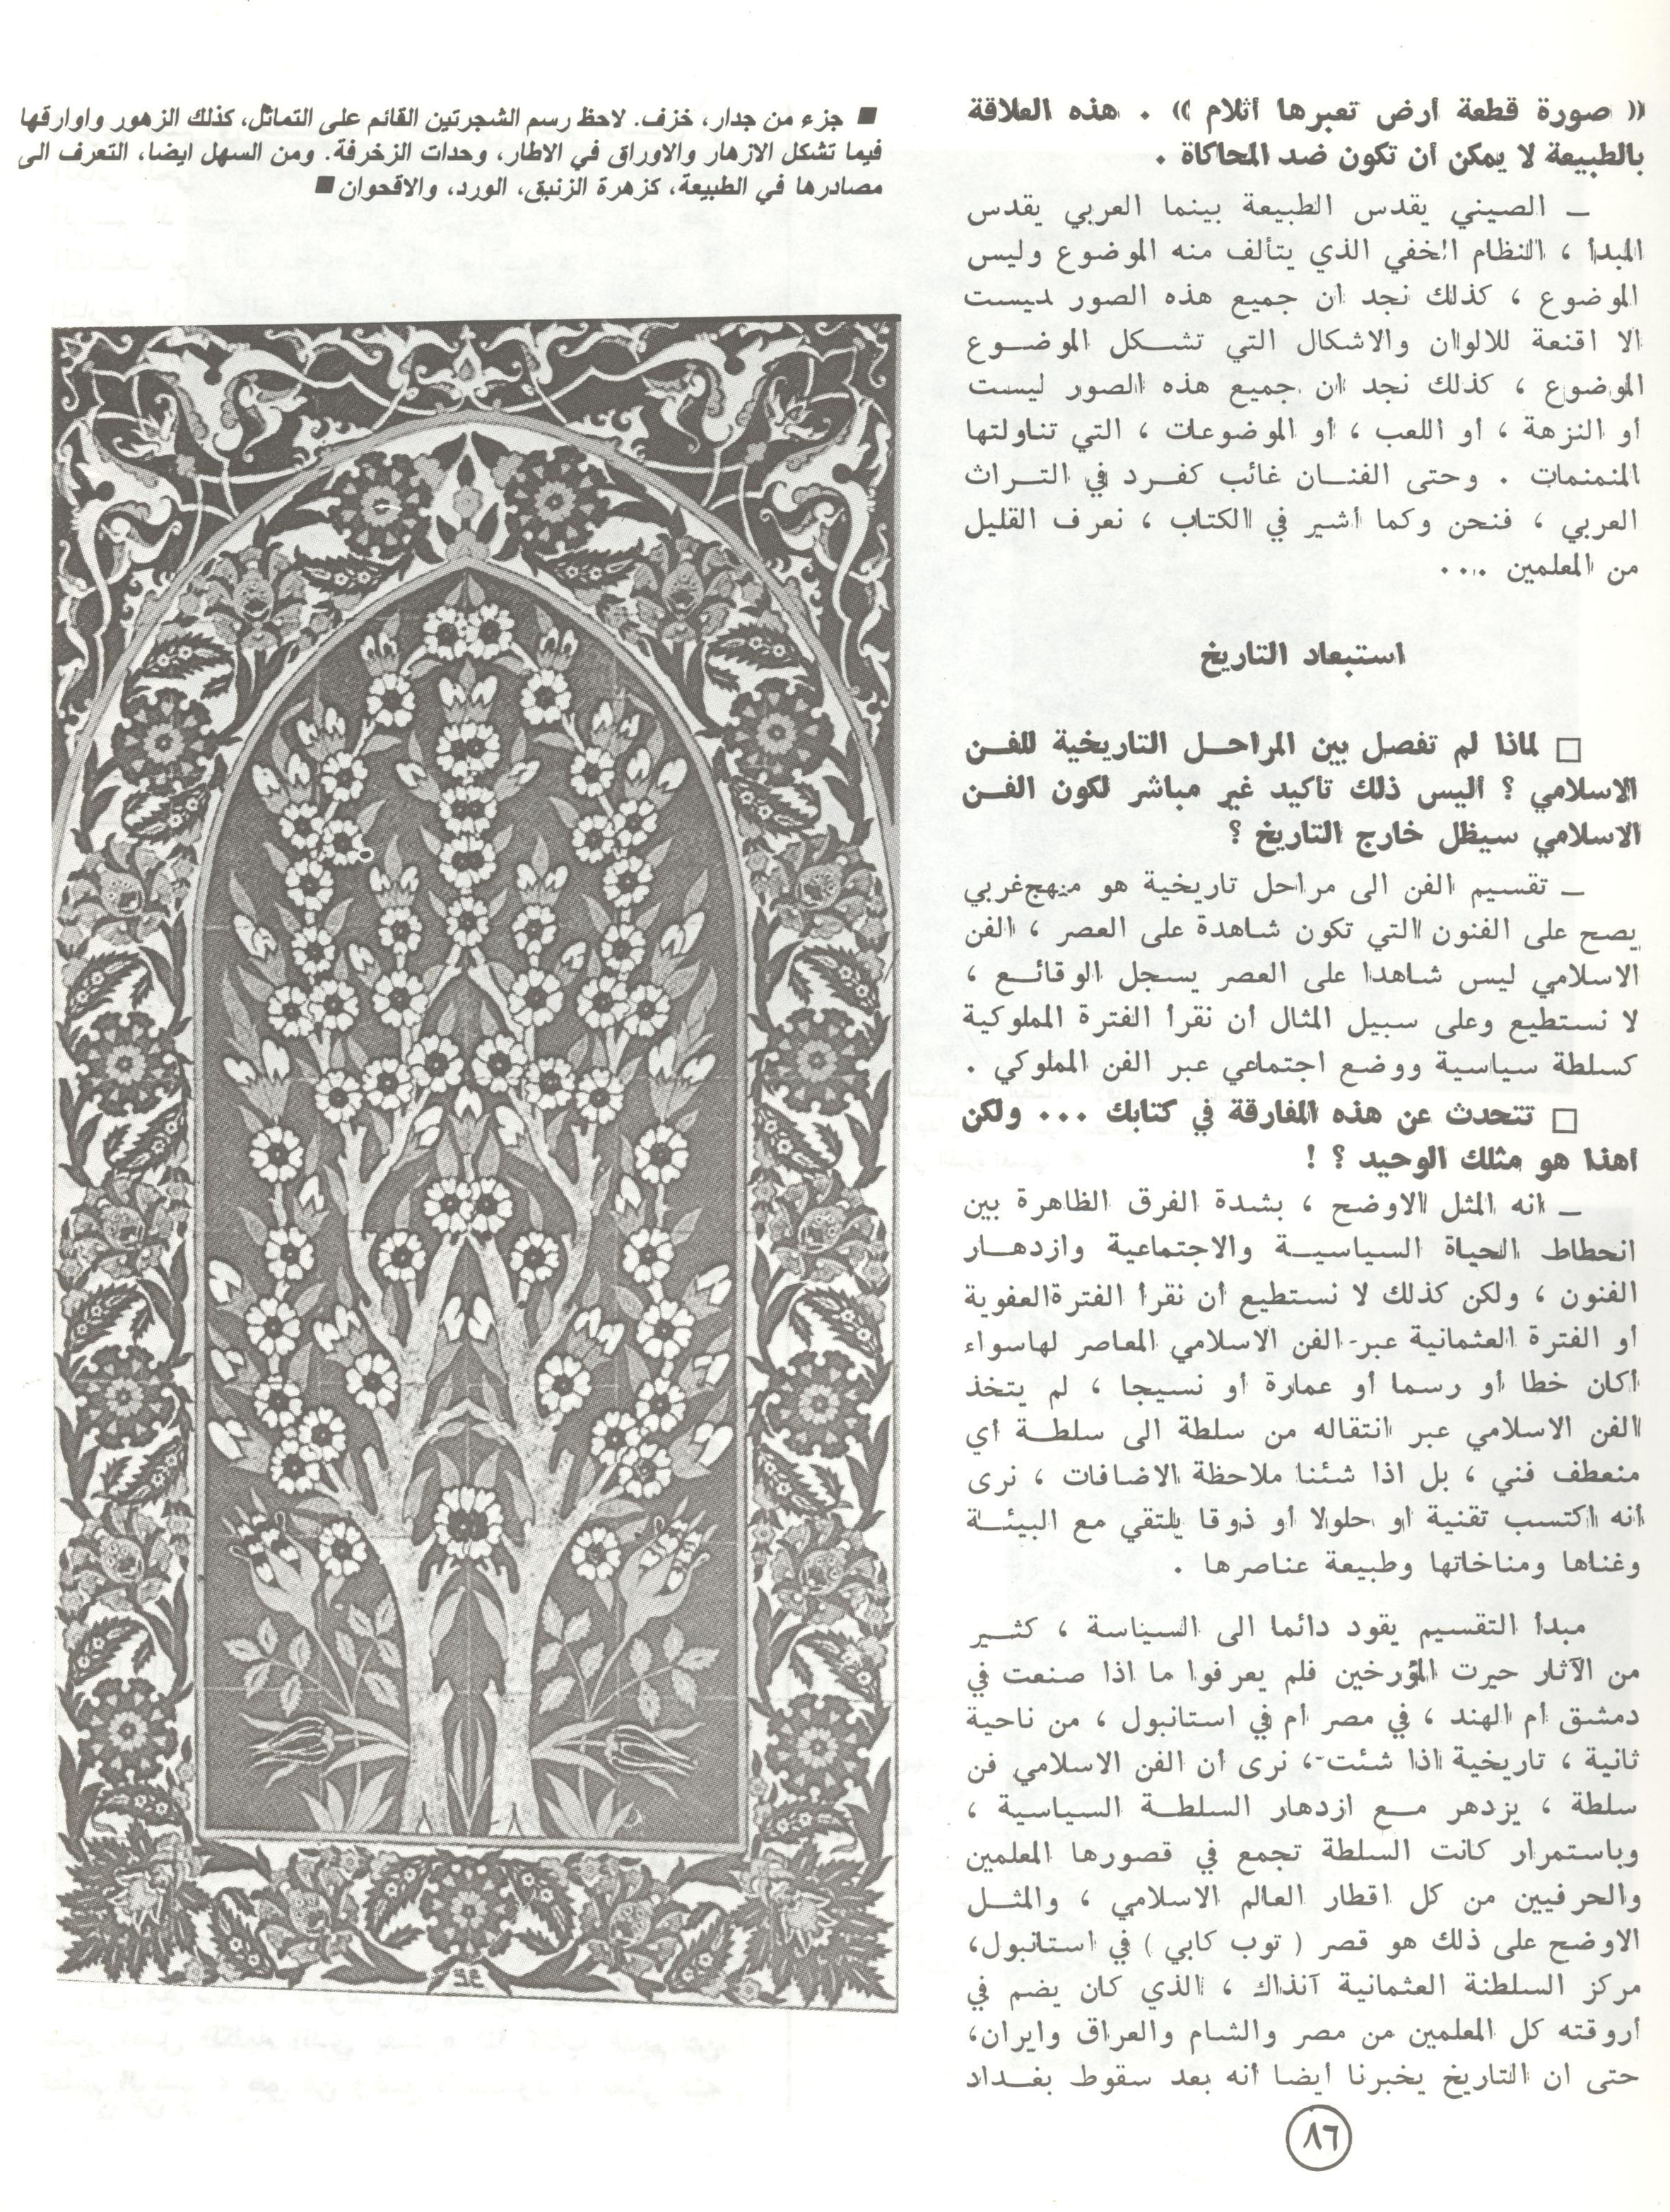 « صورة قطعة أرض تعبرها أثلام » . هذه العلاقة
بالطبيعة لا يمكن أن تكون ضد المحاكاة .
ـ الصيني يقدس الطبيعة بينما العربي يقدس
المبدأ ، النظام الخفي الذي يتألف منه الموضوع وليس
الموضوع ، كذلك نجد ان جميع هذه الصور ليست
الا اقنعة للالوان والاشكال التي تشكل الموضوع
الموضوع ، كذلك نجد ان جميع هذه الصور ليست
أو النزهة ، أو اللعب ، أو الموضوعات ، التي تناولتها
المنمنمات . وحتى الفنان غائب كفرد في التراث
العربي ، فنحن وكما أشير في الكتاب ، نعرف القليل
من المعلمين ...
استبعاد التاريخ
□ لماذا لم تفصل بين المراحل التاريخية للفن
الاسلامي ؟ أليس ذلك تأكيد غير مباشر لكون الفن
الاسلامي سيظل خارج التاريخ ؟
ـ تقسيم الفن الى مراحل تاريخية هو منهج غربي
يصح على الفنون التي تكون شاهدة على العصر ، الفن
الاسلامي ليس شاهدا على العصر يسجل الوقائع ،
لا نستطيع وعلى سبيل المثال أن نقرأ الفترة المملوكية
كسلطة سياسية ووضع اجتماعي عبر الفن المملوكي .
□ تتحدث عن هذه المفارقة في كتابك ... ولكن
اهذا هو مثلك الوحيد ؟ !
ـ انه المثل الاوضح ، بشدة الفرق الظاهرة بين
انحطاط الحياة السياسية والاجتماعية وازدهار
الفنون ، ولكن كذلك لا نستطيع أن نقرأ الفترة العفوية
أو الفترة العثمانية عبر الفن الاسلامي المعاصر لها سواء
أكان خطا أو رسما أو عمارة أو نسيجا ، لم يتخذ
الفن الاسلامي عبر انتقاله من سلطة الى سلطة أي
منعطف فني ، بل اذا شئنا ملاحظة الاضافات ، نرى
أنه اكتسب تقنية أو حلولا أو ذوقا يلتقي مع البيئة
وغناها ومناخاتها وطبيعة عناصرها .
مبدأ التقسيم يقود دائما الى السياسة ، كثير
من الآثار حيرت المؤرخين فلم يعرفوا ما اذا صنعت في
دمشق أم الهند ، في مصر أم في استانبول ، من ناحية
ثانية ، تاريخية اذا شئت ، نرى أن الفن الاسلامي فن
سلطة ، يزدهر مع ازدهار السلطة السياسية ،
وباستمرار كانت السلطة تجمع في قصورها المعلمين
والحرفيين من كل اقطار العالم الاسلامي ، والمثل
الاوضح على ذلك هو قصر ( توب كابي ) في استانبول،
مركز السلطنة العثمانية آنذاك ، الذي كان يضم في
أروقته كل المعلمين من مصر والشام والعراق وايران،
حتى ان التاريخ يخبرنا أيضا أنه بعد سقوط بغداد
■ جزء من جدار، خزف. لاحظ رسم الشجرتين القائم على التماثل، كذلك الزهور واوارقها
فيما تشكل الازهار والاوراق في الاطار، وحدات الزخرفة. ومن السهل ايضا، التعرف الى
مصادرها في الطبيعة، كزهرة الزنبق، الورد، والاقحوان ■
٨٦